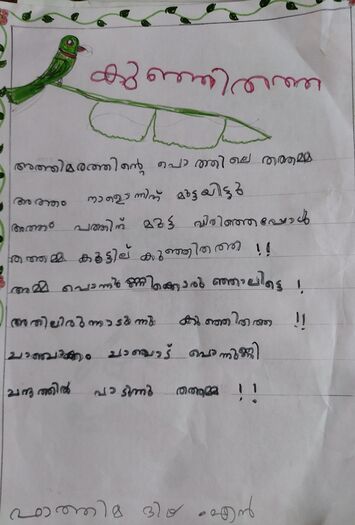 കുഞ്ഞിതത്ത
അത്തിമരത്തിന്റെ പൊത്തിലെ തത്തമ്മ
അത്തം നാളൊന്നിന് മുട്ടയിട്ടു
അത്തം പത്തിന് മുട്ട വിരിഞ്ഞപ്പോൾ
തത്തമ്മ കൂട്ടില് കുഞ്ഞിതത്ത !!
അമ്മ പൊന്നുണ്ണിക്കൊരു ഞ്ഞാലിട്ടെ !
അതിലിരുന്നാടുന്നു കുഞ്ഞിതത്ത !!
ചാഞ്ചക്കം ചാഞ്ചാട് പൊന്നുണ്ണി
ചന്തത്തിൽ പാടുന്നു തത്തമ്മ !!
ഫാത്തിമ ദിയ .എൻ